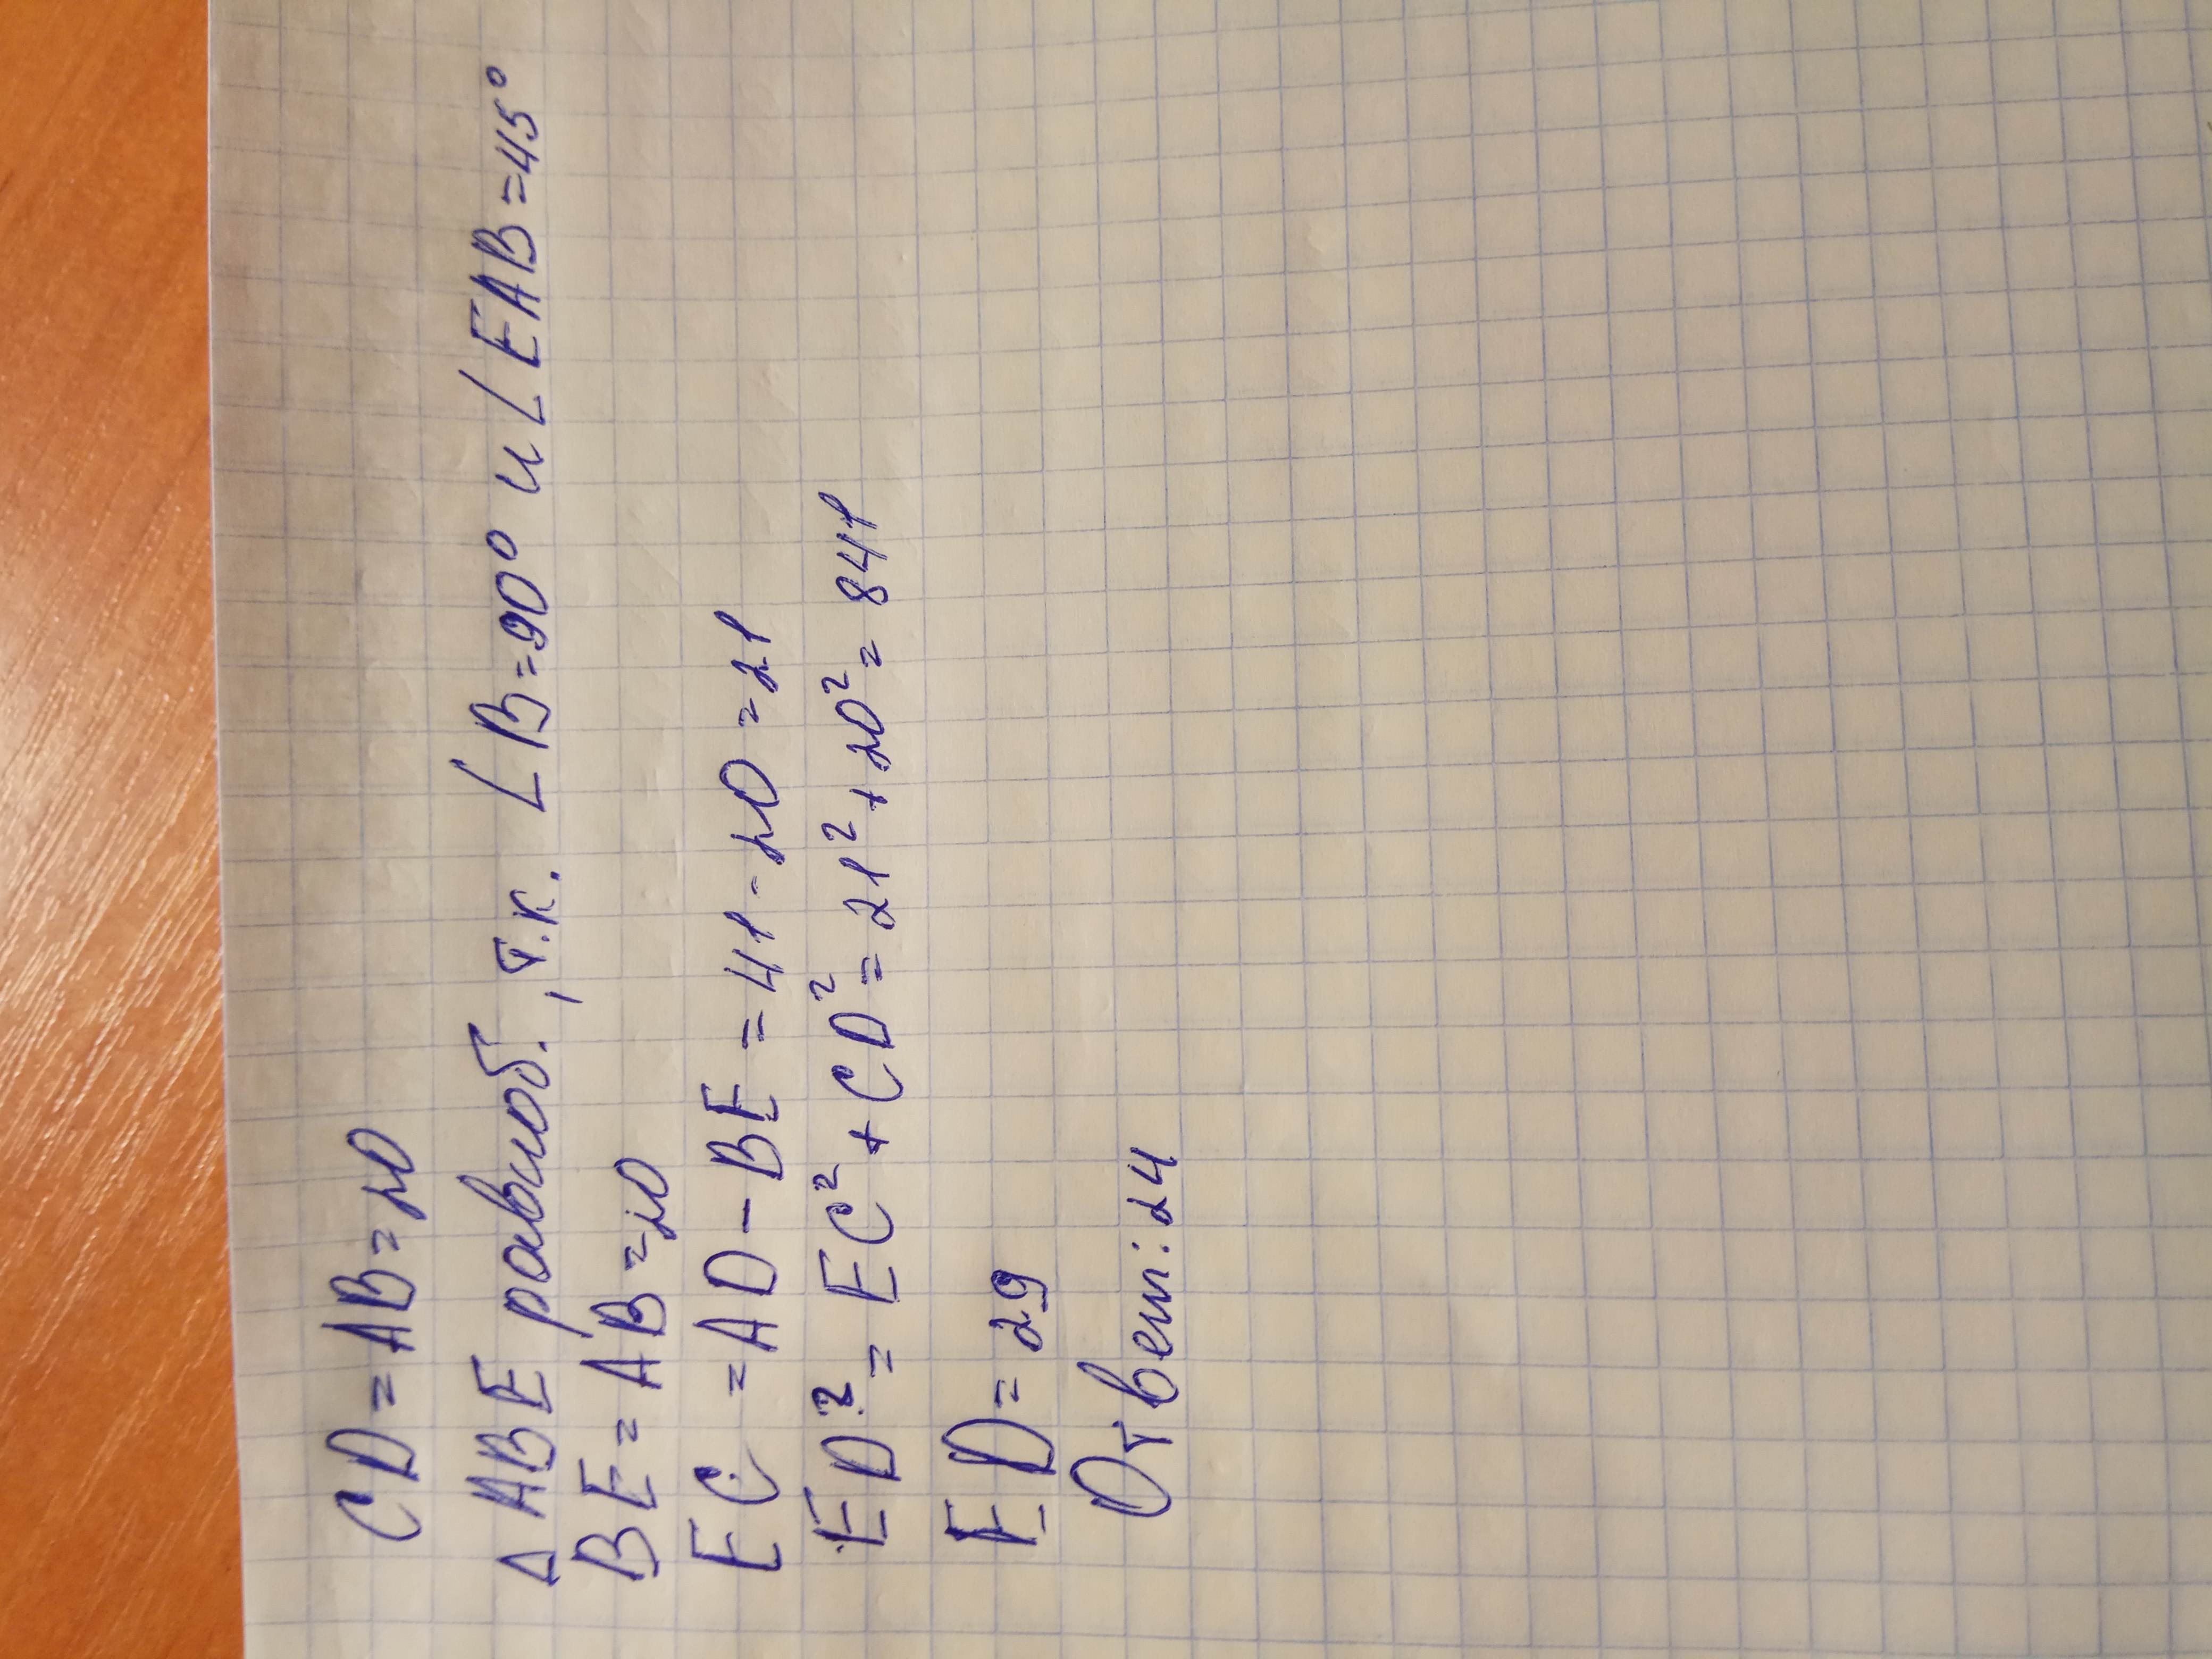 CD = AB = 20
Δ ABE равноб., т.к. ∠B = 90° и ∠EAB = 45°
BE = AB = 20
EC = AD - BE = 41 - 20 = 21
ED² = EC² + CD² = 21² + 20² = 841
ED = 29
Ответ: 24